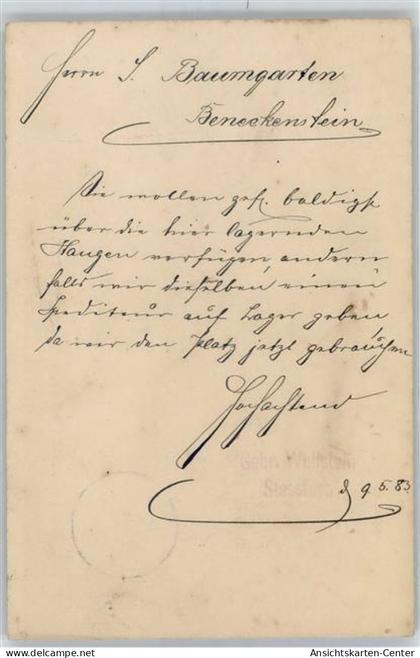 Herrn S. Baumgarten
Beneckenstein
Sie wollen gefl. baldigst
über die hier lagernden
verfügen, andern
falls wir dieselben einem
Spediteur auf Lager geben,
da wir den Platz jetzt gebrauchen
Hochachtend
Gebr. Wulfstein
Stassfurt
d 9. 5. 83
© Ansichtskarten-Center
www.delcampe.net
Ansichtskarten-Center